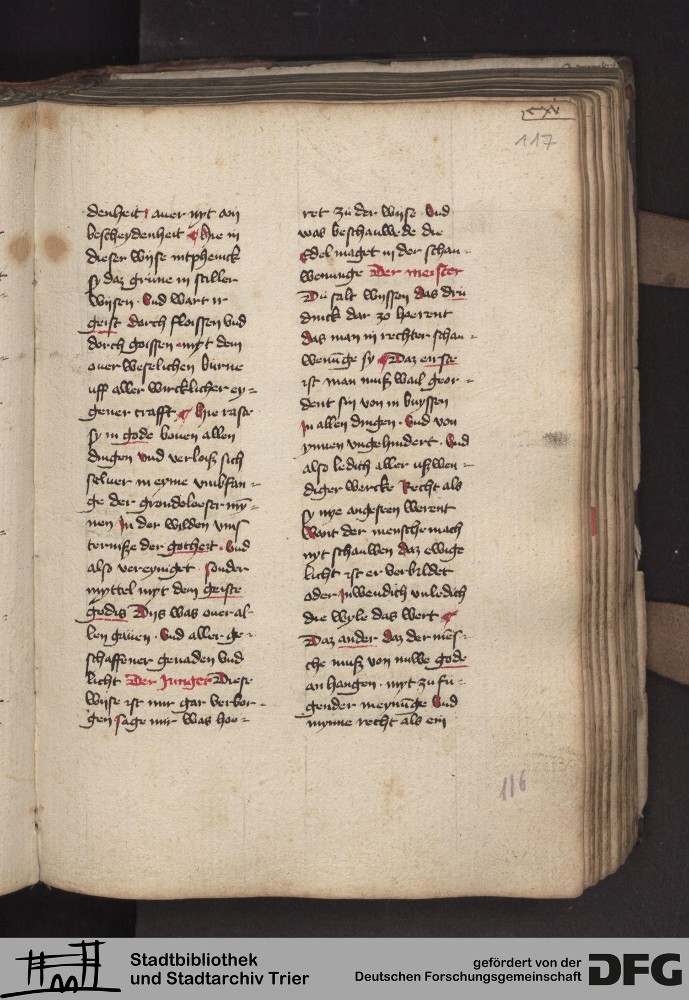 cxv
117
denheit auer nyt an
bescheydenheit Hie in
dieser wyse intphenck
sy daz grune in stiller
wysen · Vnd wart ir
geist dorch floissen vnd
dorch goissen myt dem
ouer weselichen burne
uff aller wircklicher ey=
gener crafft Hie raste
sy in gode bouen allen
dingen vnd verloiß sich
seluer in eyme vmbfan=
ge der grondeloeser my̅=
nen In der wilden vins
terniße der gotheit · Vnd
also vereyniget · sonder
myttel myt dem geiste
godis Diis was ouer al=
len gauen · Vnd aller ge=
schaffener genaden vnd
licht Der Junger Diese
wyse ist mir gar verbor=
gen sage mir was hoe=
ret zu der wyse · Vnd
was beschauwede die
Edel maget in der schau=
wenunge Der meister
Du salt wyssen das dru
dinck dar zo hoerent
das man in rechter schau=
wenu̅ge sy Daz eirste
ist man muß wail geor=
dent sin von in buyssen
In allen dingen · Vnd von
ynnen vngehindert · Vnd
also ledich aller ußwen=
diger wercke Recht als
sy nye angesien werent
Want der mensche mach
nyt schauwen daz ewige
licht ist er verbildet
oder Inwendich vnledich
die wyle das wert
Daz ander daz der mēs=
che muß von nuwe gode
an hangen · myt zu fu=
gender meynu̅ge Vnd
mynne recht als ein
116
Stadtbibliothek
und Stadtarchiv Trier
gefördert von der
Deutschen Forschungsgemeinschaft
DFG